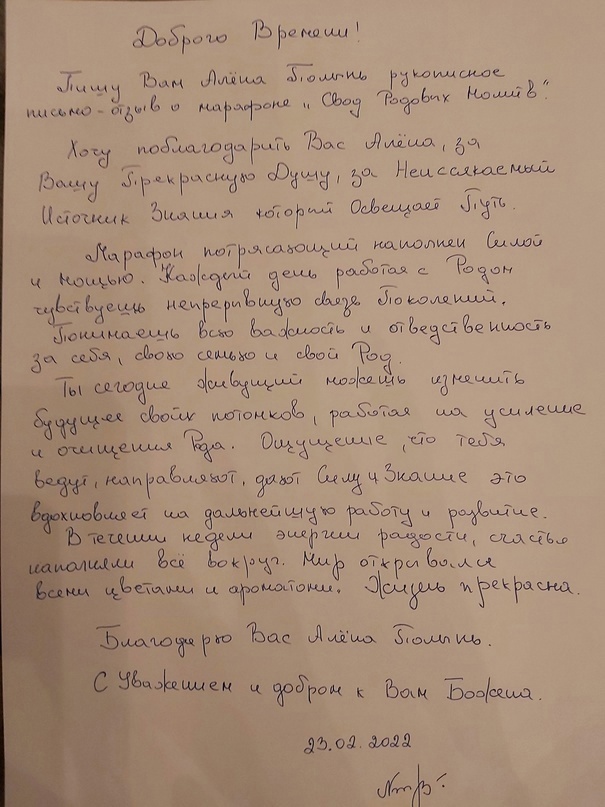 Доброго Времени!
Пишу Вам Алёна Полынь рукописное
письмо-отзыв о марафоне „Свод Родовых Молитв".
Хочу поблагодарить Вас Алёна, за
Вашу Прекрасную Душу, за Неиссякаемый
Источник Знания который Освещает Путь.
Марафон потрясающий наполнен Силой
и мощью. Каждый день работая с Родом
чувствуешь непрерывную связь Поколений.
Понимаешь всю важность и ответственность
за себя, свою семью и свой Род.
Ты сегодне живущий можешь изменить
будущее своих потомков, работая на усиление
и очищения Рода. Ощущение, что тебя
ведут, направляют, дают Силу и Знание это
вдохновляет на дальнейшую работу и развитие.
В течении недели энергии радости, счастья
наполняли всё вокруг. Мир открывался
всеми цветами и ароматами. Жизнь прекрасна.
Благодарю Вас Алёна Полынь.
С Уважением и добром к Вам Божена.
23.02.2022